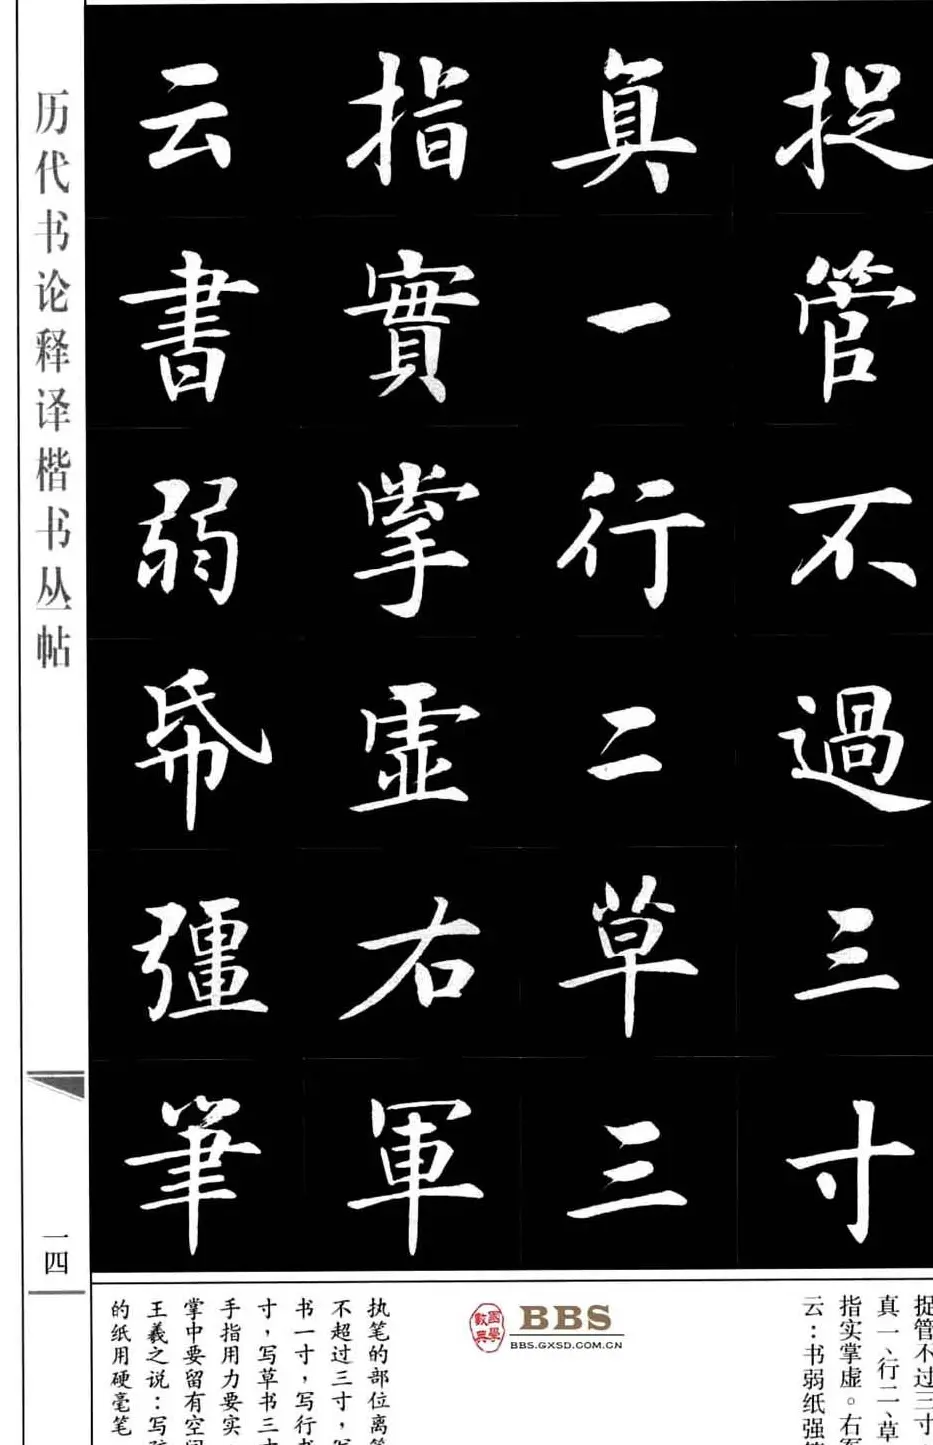 捉管不過三寸
真一行二草三
指實掌虛右軍
云書弱帋彊筆
历代书论释译楷书丛帖
一四
捉管不过三寸
真一、行二、草
指实掌虚。右军
云：书弱纸强
执笔的部位离
不超过三寸，写
书一寸，写行书
寸，写草书三寸
手指用力要实
掌中要留有空
王羲之说：写
的纸用硬毫笔
國學數典
BBS
BBS.GXSD.COM.CN